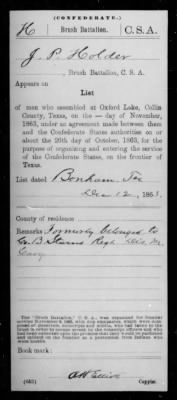 (CONFEDERATE.)
H Brush Battalion. C.S.A.
J. P. Holder
, Brush Battalion, C. S. A.
Appears on
List
of men who assembled at Oxford Lake, Collin
County, Texas, on the — day of November,
1863, under an agreement made between them
and the Confederate States authorities on or
about the 29th day of October, 1863, for the
purpose of organizing and entering the service
of the Confederate States, on the frontier of
Texas.
List dated Bonham Tex
Dec 12, 1863.
County of residence
Remarks Formerly belonged to
Regt
Cavy
Book mark:
(652) Copyist.